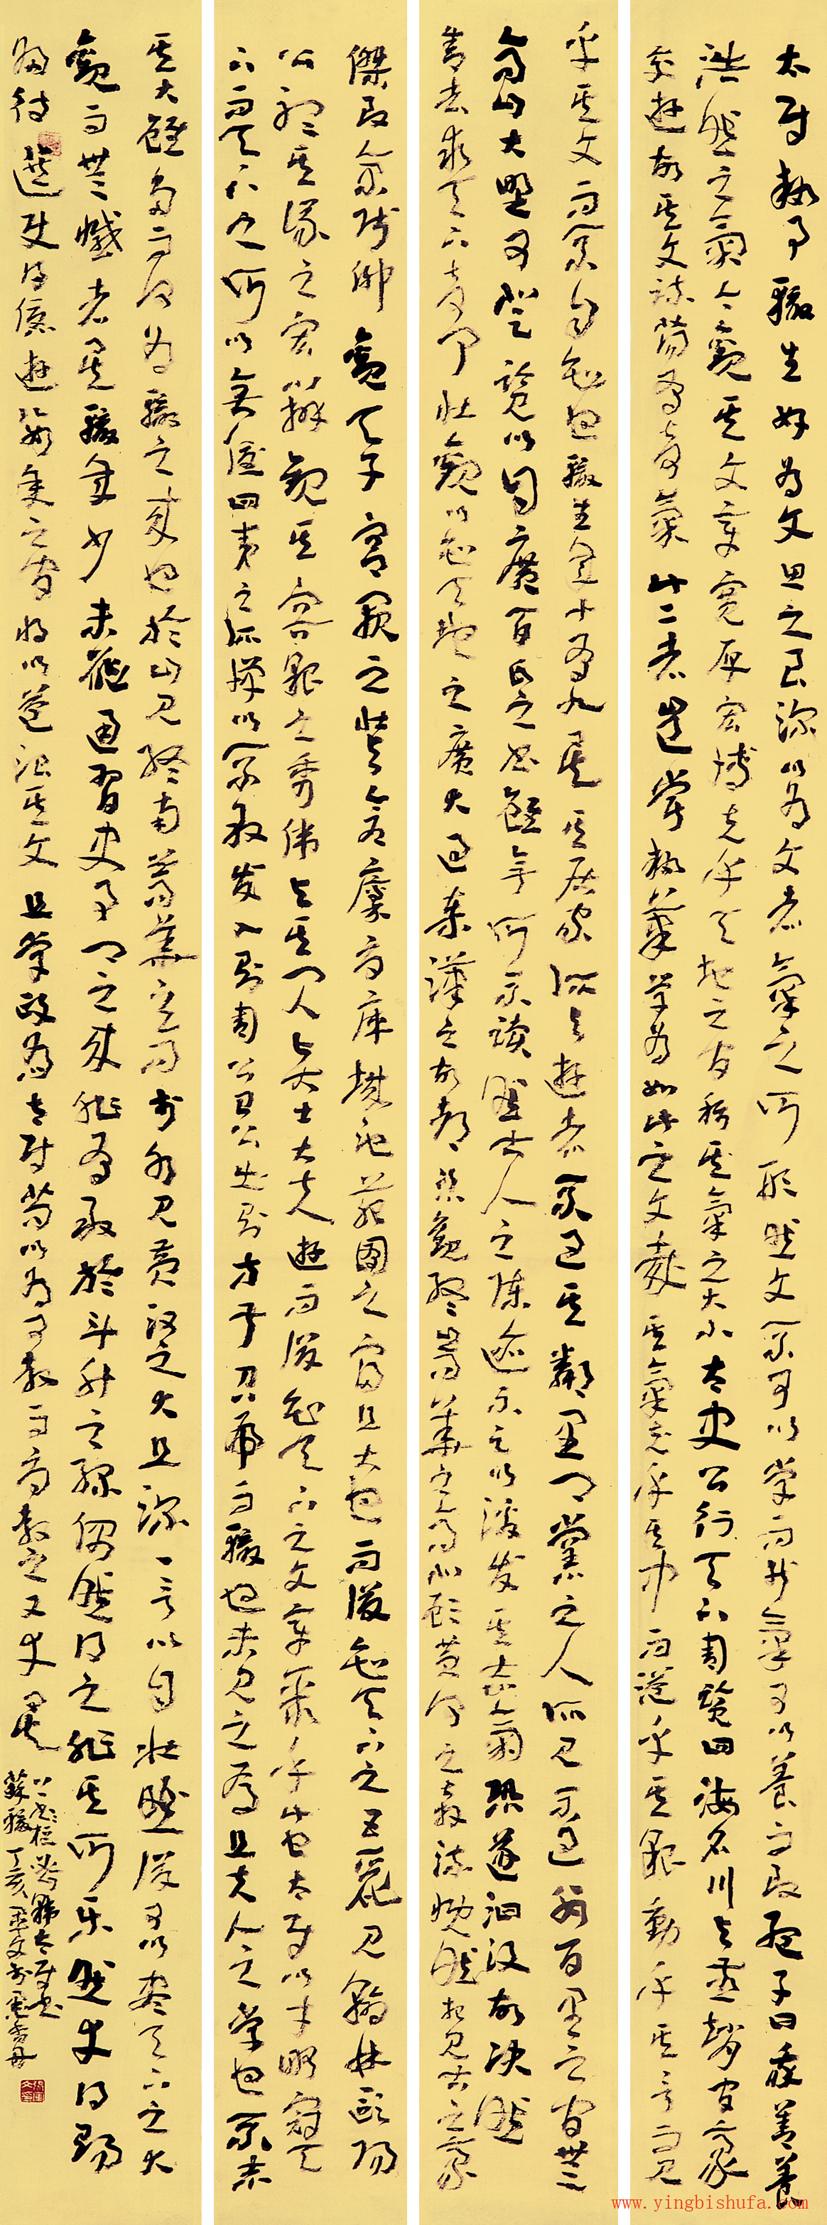 太尉執事轍生好為文思之至深以為文者氣之所形然文不可以學而能氣可以養而致孟子曰我善養
浩然之氣今觀其文章寬厚宏博充乎天地之間稱其氣之大小太史公行天下周覽四海名川與燕趙間豪
交遊故其文疏蕩有奇氣此二者豈嘗執筆學為如此之文哉其氣充乎其中而溢乎其貌動乎其言而見
乎其文而不自知也轍生年十有九矣其居家所與遊者不過其鄰里鄉黨之人所見不過數百里之間無
高山大野可登覽以自廣百氏之書雖無所不讀然古人之陳迹不足以激發其志氣恐遂汩沒故決然
舍去求天下奇聞壯觀以知天地之廣大過秦漢之故都恣觀終嵩華之高北顧黃河之奔流慨然想見古之豪
傑至京師仰觀天子宮闕之壯與倉廩府庫城池苑囿之富且大也而後知天下之巨麗見翰林歐陽
公聽其議之宏辯觀其容貌之秀偉與其門人賢士大夫遊而後知天下之文章聚乎此也太尉以才略冠天
下而天下之所以無憂四夷之所憚以不敢發入則周公召公出則方叔召虎而轍也未見之焉且夫人之學也不志
其大雖多而何為轍之來也於山見終南嵩華之高於水見黃河之大且深一言以自壯然後可以盡天下之大
觀而無憾者矣轍年少未能通習吏事向之來非有取於斗升之祿偶然得之非其所樂然幸得賜
歸待選使得優遊數年之間將以益治其文且學政為太尉苟以為可教而辱教之又幸矣
上樞密韓太尉書
蘇轍丁亥
www.yingbishufa.com